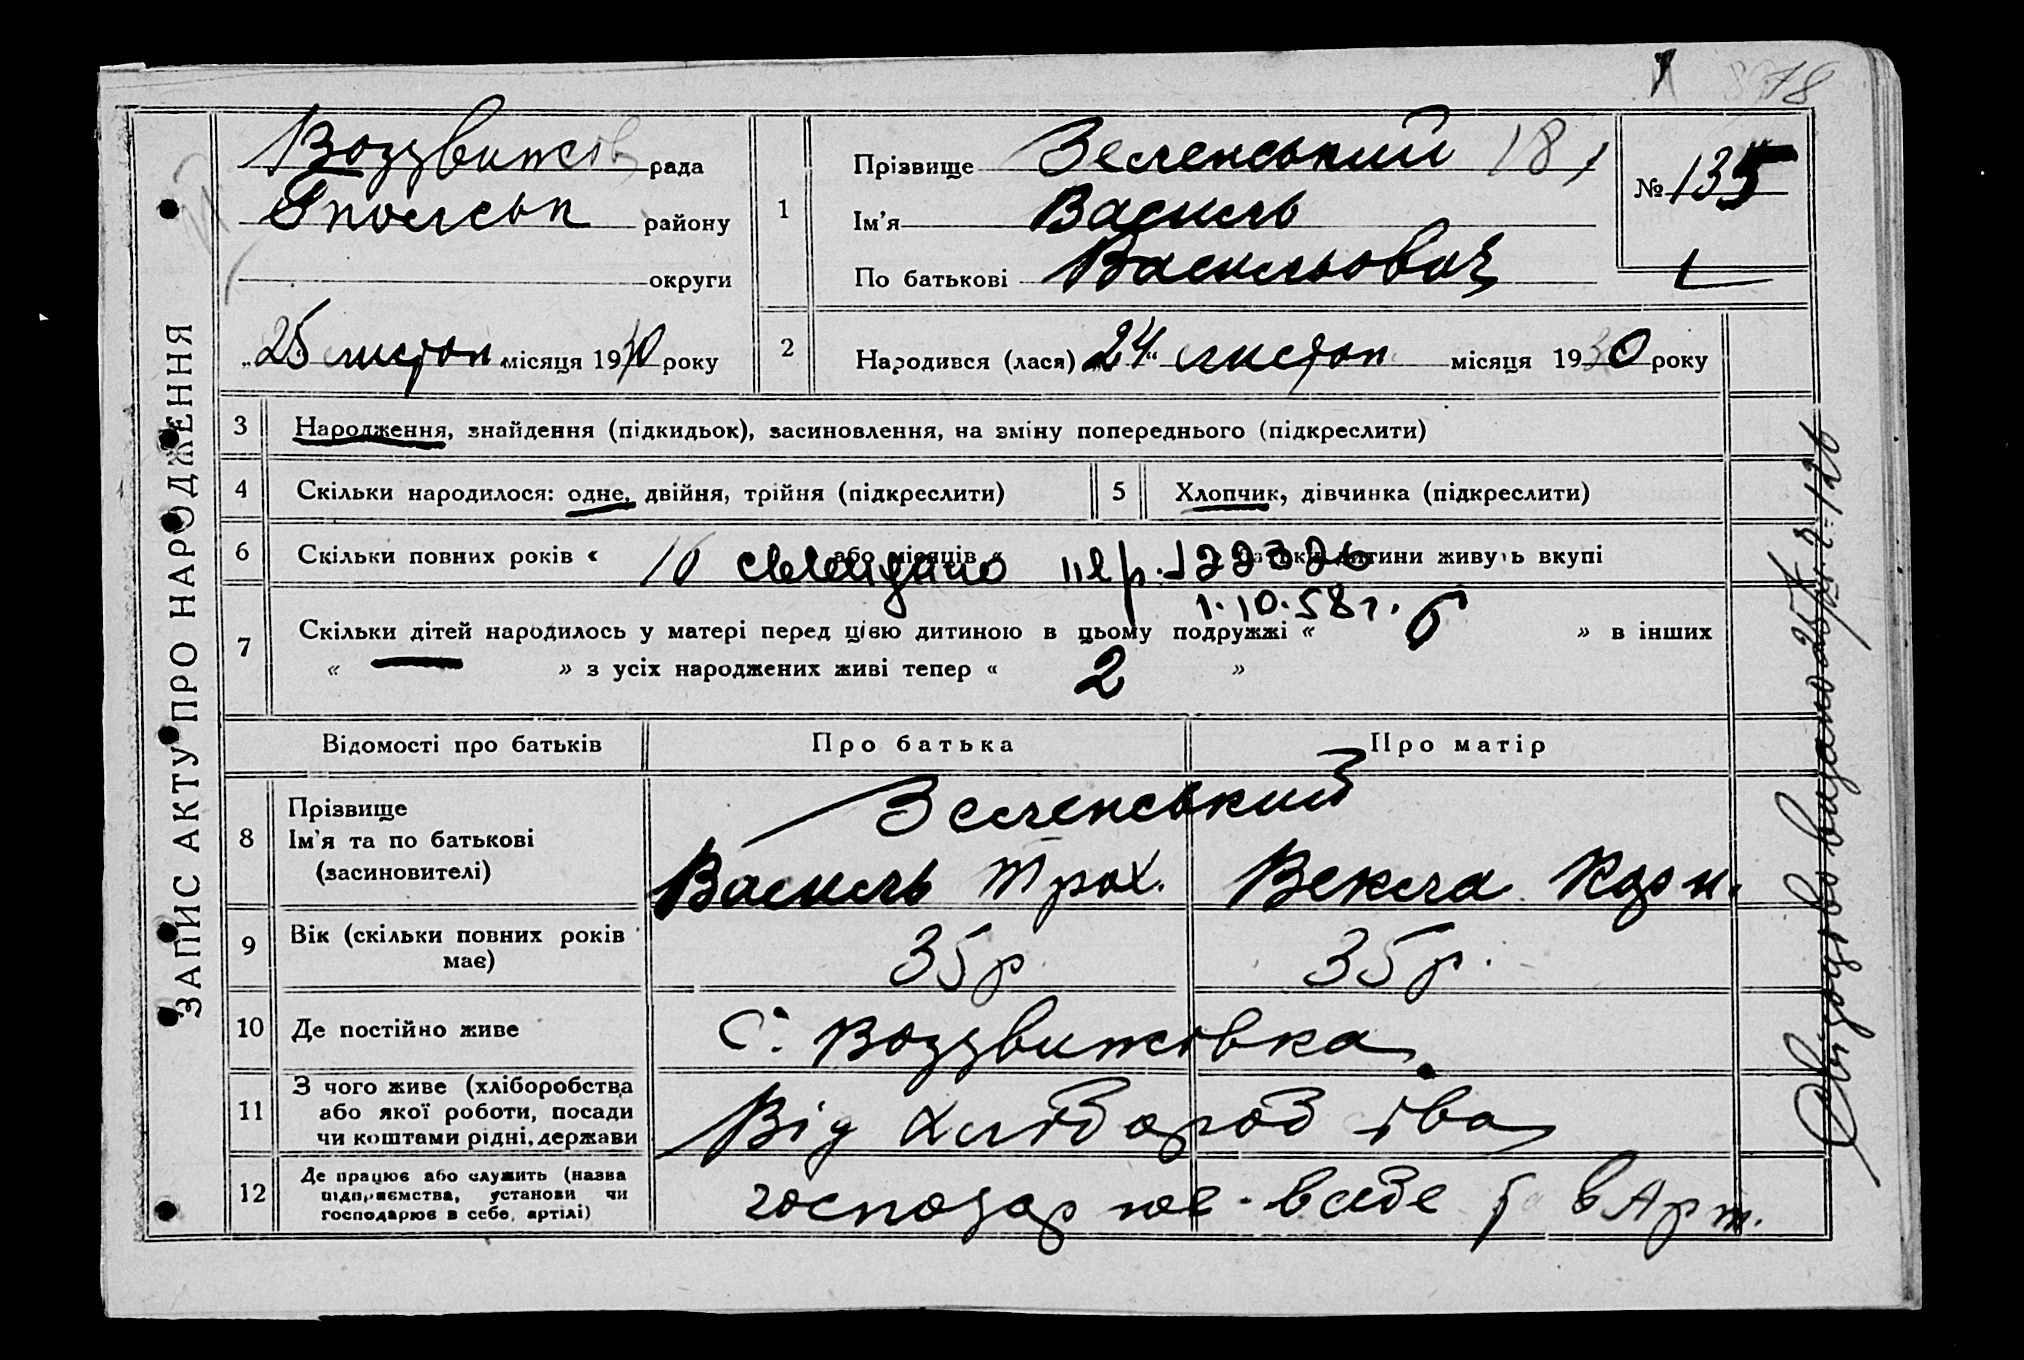 ЗАПИС АКТУ ПРО НАРОДЖЕННЯ
Воздвижів рада
району
округи
„25 листоп місяця 1930 року
1
Прізвище Зеленський 18
Ім'я Василь
По батькові Васильович
№ 135
2
Народився (лася) „24“ листоп. місяця 1930 року
3 Народження, знайдення (підкидьок), засиновлення, на зміну попереднього (підкреслити)
4 Скільки народилося: одне, двійня, трійня (підкреслити)
5 Хлопчик, дівчинка (підкреслити)
6 Скільки повних років « 16 або місяців « батьки дитини живуть вкупі
1.10.58 г.
7 Скільки дітей народилось у матері перед цією дитиною в цьому подружжі « 6 » в інших
« — » з усіх народжених живі тепер « 2 »
Відомості про батьків
Про батька
Про матір
8 Прізвище
Ім'я та по батькові
(засиновителі)
Зеленський
Василь Трох. Векла
9 Вік (скільки повних років має)
35 р. 35 р.
10 Де постійно живе
С. Воздвижівка
11 З чого живе (хліборобства або якої роботи, посади чи коштами рідні, держави
Від хліборобства
12 Де працює або служить (назва підприємства, установи чи господарює в себе, артілі)
господарює в себе в Арт.